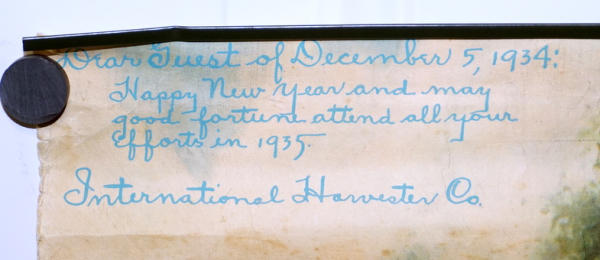 Dear Guest of December 5, 1934:
Happy New Year and may
good fortune attend all your
efforts in 1935.
International Harvester Co.